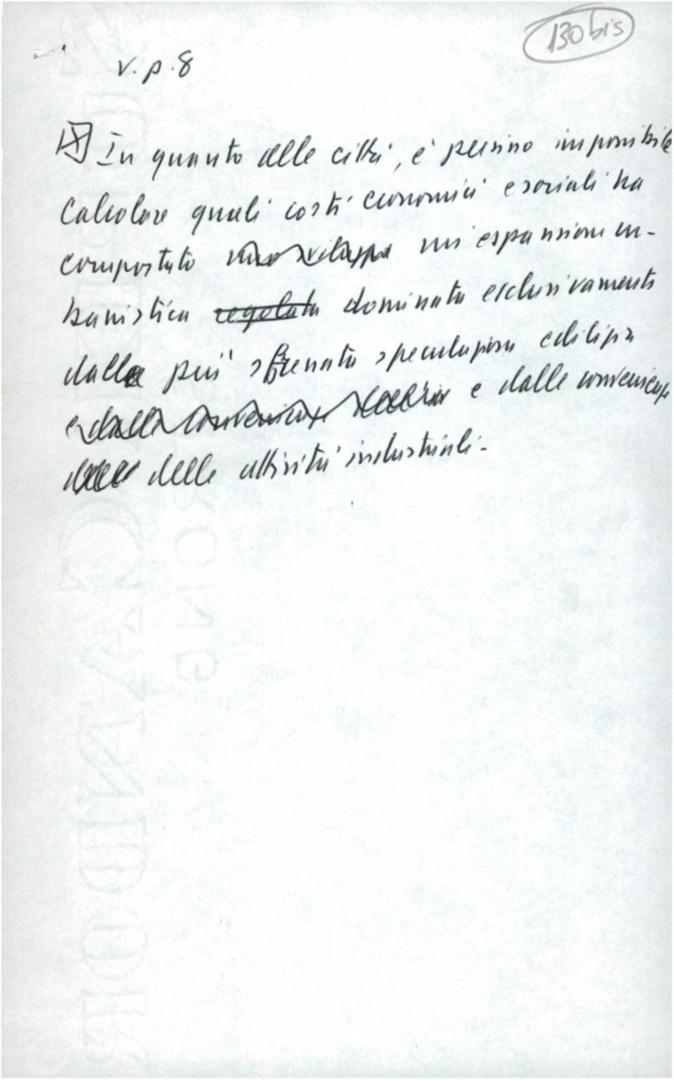 130 bis
v. p. 8
In quanto alle città, è persino impossibile
calcolare quali costi economici e sociali ha
comportato uno sviluppo un'espansione ur-
banistica regolata dominata esclusivamente
dalla più sfrenata speculazione edilizia
e dalle convenienze e dalle convenienze
delle attività industriali.